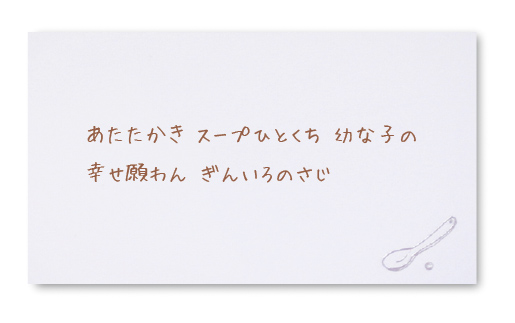 あたたかき スープひとくち 幼な子の
幸せ願わん ぎんいろのさじ
©